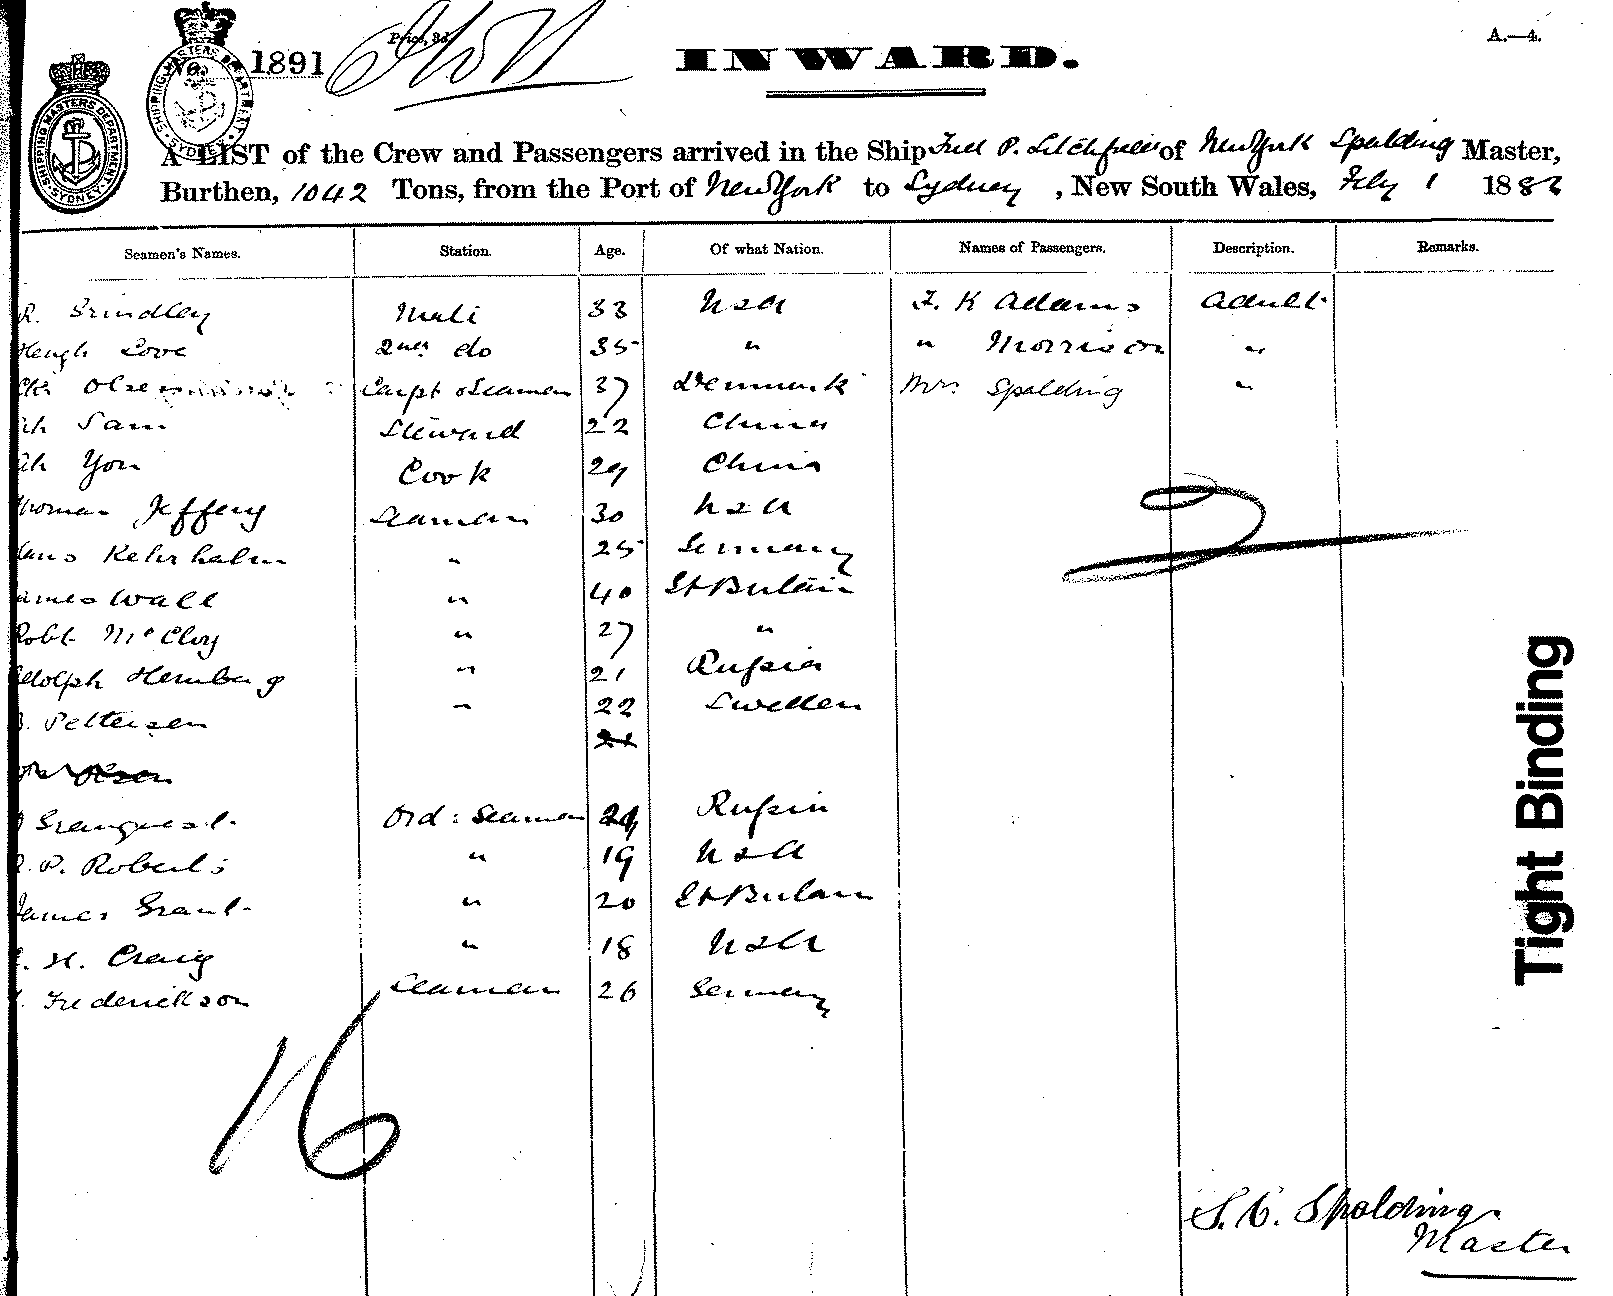 A.—4.
Price, 3d.
No. 1891
INWARD.
SHIPPING MASTERS DEPARTMENT SYDNEY
A LIST of the Crew and Passengers arrived in the Ship P. Litchfield of New York Spalding Master,
Burthen, 1042 Tons, from the Port of New York to Sydney, New South Wales, July 1 188
Seamen's Names. Station. Age. Of what Nation. Names of Passengers. Description. Remarks.
R. Grindley Mate 33 USA F. K Adams Adult
Hugh Love 2nd do 35 " " Morrison "
Olsen Carpt & Seaman 37 Denmark Mrs Spalding "
Ah Sam Steward 22 China
Ah You Cook 29 China
Thomas Jeffery Seaman 30 USA
Hans " 25 Germany
James Wall " 40 Gt Britain
Robt McCloy " 27 "
Adolph " 21 Russia
Pettersen " 22 Sweden
21
Olsen
Ord: Seaman 24 Russia
R. P. Roberts " 19 USA
James Grant " 20 Gt Britain
H. Craig " 18 USA
Frederickson Seaman 26 Germany
16
S. C. Spalding
Master
Tight Binding